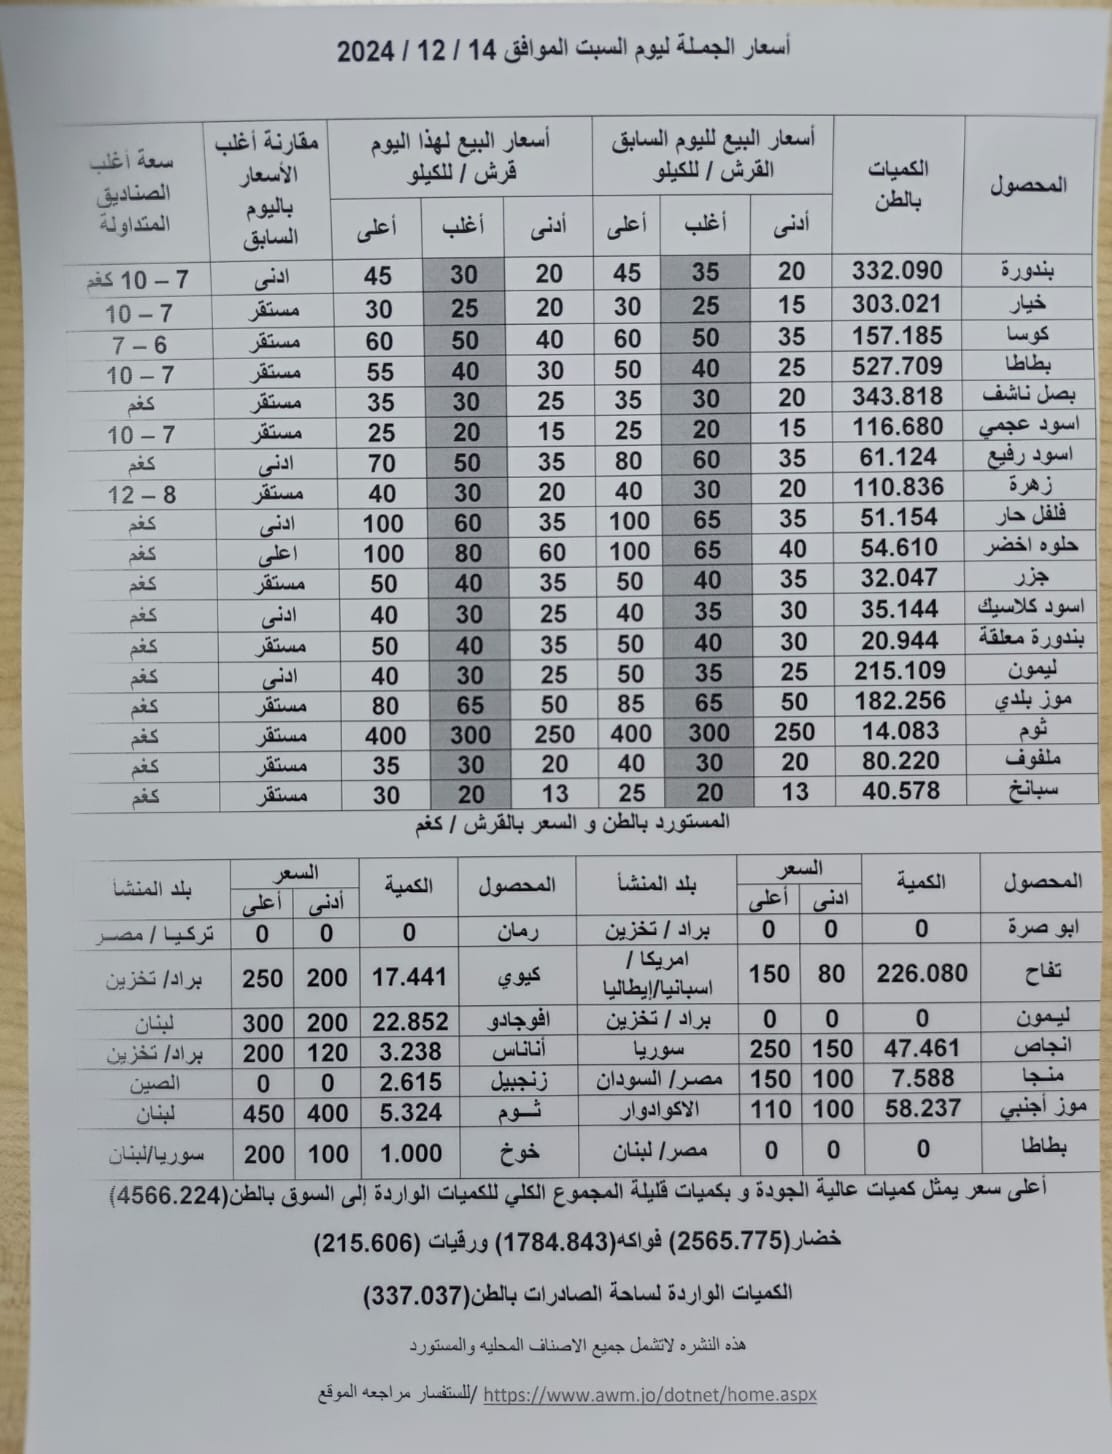 أسعار الجملة ليوم السبت الموافق 14 / 12 / 2024
المحصول | الكميات بالطن | أسعار البيع لليوم السابق القرش / للكيلو | أسعار البيع لهذا اليوم قرش / للكيلو | مقارنة أغلب الأسعار باليوم السابق | سعة أغلب الصناديق المتداولة
أدنى | أغلب | أعلى | أدنى | أغلب | أعلى
بندورة | 332.090 | 20 | 35 | 45 | 20 | 30 | 45 | ادنى | 7 – 10 كغم
خيار | 303.021 | 15 | 25 | 30 | 20 | 25 | 30 | مستقر | 7 – 10
كوسا | 157.185 | 35 | 50 | 60 | 40 | 50 | 60 | مستقر | 6 – 7
بطاطا | 527.709 | 25 | 40 | 50 | 30 | 40 | 55 | مستقر | 7 – 10
بصل ناشف | 343.818 | 20 | 30 | 35 | 25 | 30 | 35 | مستقر | كغم
اسود عجمي | 116.680 | 15 | 20 | 25 | 15 | 20 | 25 | مستقر | 7 – 10
اسود رفيع | 61.124 | 35 | 60 | 80 | 35 | 50 | 70 | ادنى | كغم
زهرة | 110.836 | 20 | 30 | 40 | 20 | 30 | 40 | مستقر | 8 – 12
فلفل حار | 51.154 | 35 | 65 | 100 | 35 | 60 | 100 | ادنى | كغم
حلوه اخضر | 54.610 | 40 | 65 | 100 | 60 | 80 | 100 | اعلى | كغم
جزر | 32.047 | 35 | 40 | 50 | 35 | 40 | 50 | مستقر | كغم
اسود كلاسيك | 35.144 | 30 | 35 | 40 | 25 | 30 | 40 | ادنى | كغم
بندورة معلقة | 20.944 | 30 | 40 | 50 | 35 | 40 | 50 | مستقر | كغم
ليمون | 215.109 | 25 | 35 | 50 | 25 | 30 | 40 | ادنى | كغم
موز بلدي | 182.256 | 50 | 65 | 85 | 50 | 65 | 80 | مستقر | كغم
ثوم | 14.083 | 250 | 300 | 400 | 250 | 300 | 400 | مستقر | كغم
ملفوف | 80.220 | 20 | 30 | 40 | 20 | 30 | 35 | مستقر | كغم
سبانخ | 40.578 | 13 | 20 | 25 | 13 | 20 | 30 | مستقر | كغم
المستورد بالطن و السعر بالقرش / كغم
المحصول | الكمية | السعر | بلد المنشأ | المحصول | الكمية | السعر | بلد المنشأ
ادنى | أعلى | أدنى | أعلى
ابو صرة | 0 | 0 | 0 | براد / تخزين | رمان | 0 | 0 | 0 | تركيا / مصر
تفاح | 226.080 | 80 | 150 | امريكا / اسبانيا/إيطاليا | كيوي | 17.441 | 200 | 250 | براد/ تخزين
ليمون | 0 | 0 | 0 | براد / تخزين | افوجادو | 22.852 | 200 | 300 | لبنان
انجاص | 47.461 | 150 | 250 | سوريا | أناناس | 3.238 | 120 | 200 | براد/ تخزين
منجا | 7.588 | 100 | 150 | مصر/ السودان | زنجبيل | 2.615 | 0 | 0 | الصين
موز أجنبي | 58.237 | 100 | 110 | الاكوادوار | ثوم | 5.324 | 400 | 450 | لبنان
بطاطا | 0 | 0 | 0 | مصر/ لبنان | خوخ | 1.000 | 100 | 200 | سوريا/لبنان
أعلى سعر يمثل كميات عالية الجودة و بكميات قليلة المجموع الكلي للكميات الواردة إلى السوق بالطن(4566.224)
خضار(2565.775) فواكه(1784.843) ورقيات (215.606)
الكميات الواردة لساحة الصادرات بالطن(337.037)
هذه النشره لاتشمل جميع الاصناف المحليه والمستورد
للستفسار مراجعه الموقع/ https://www.awm.jo/dotnet/home.aspx